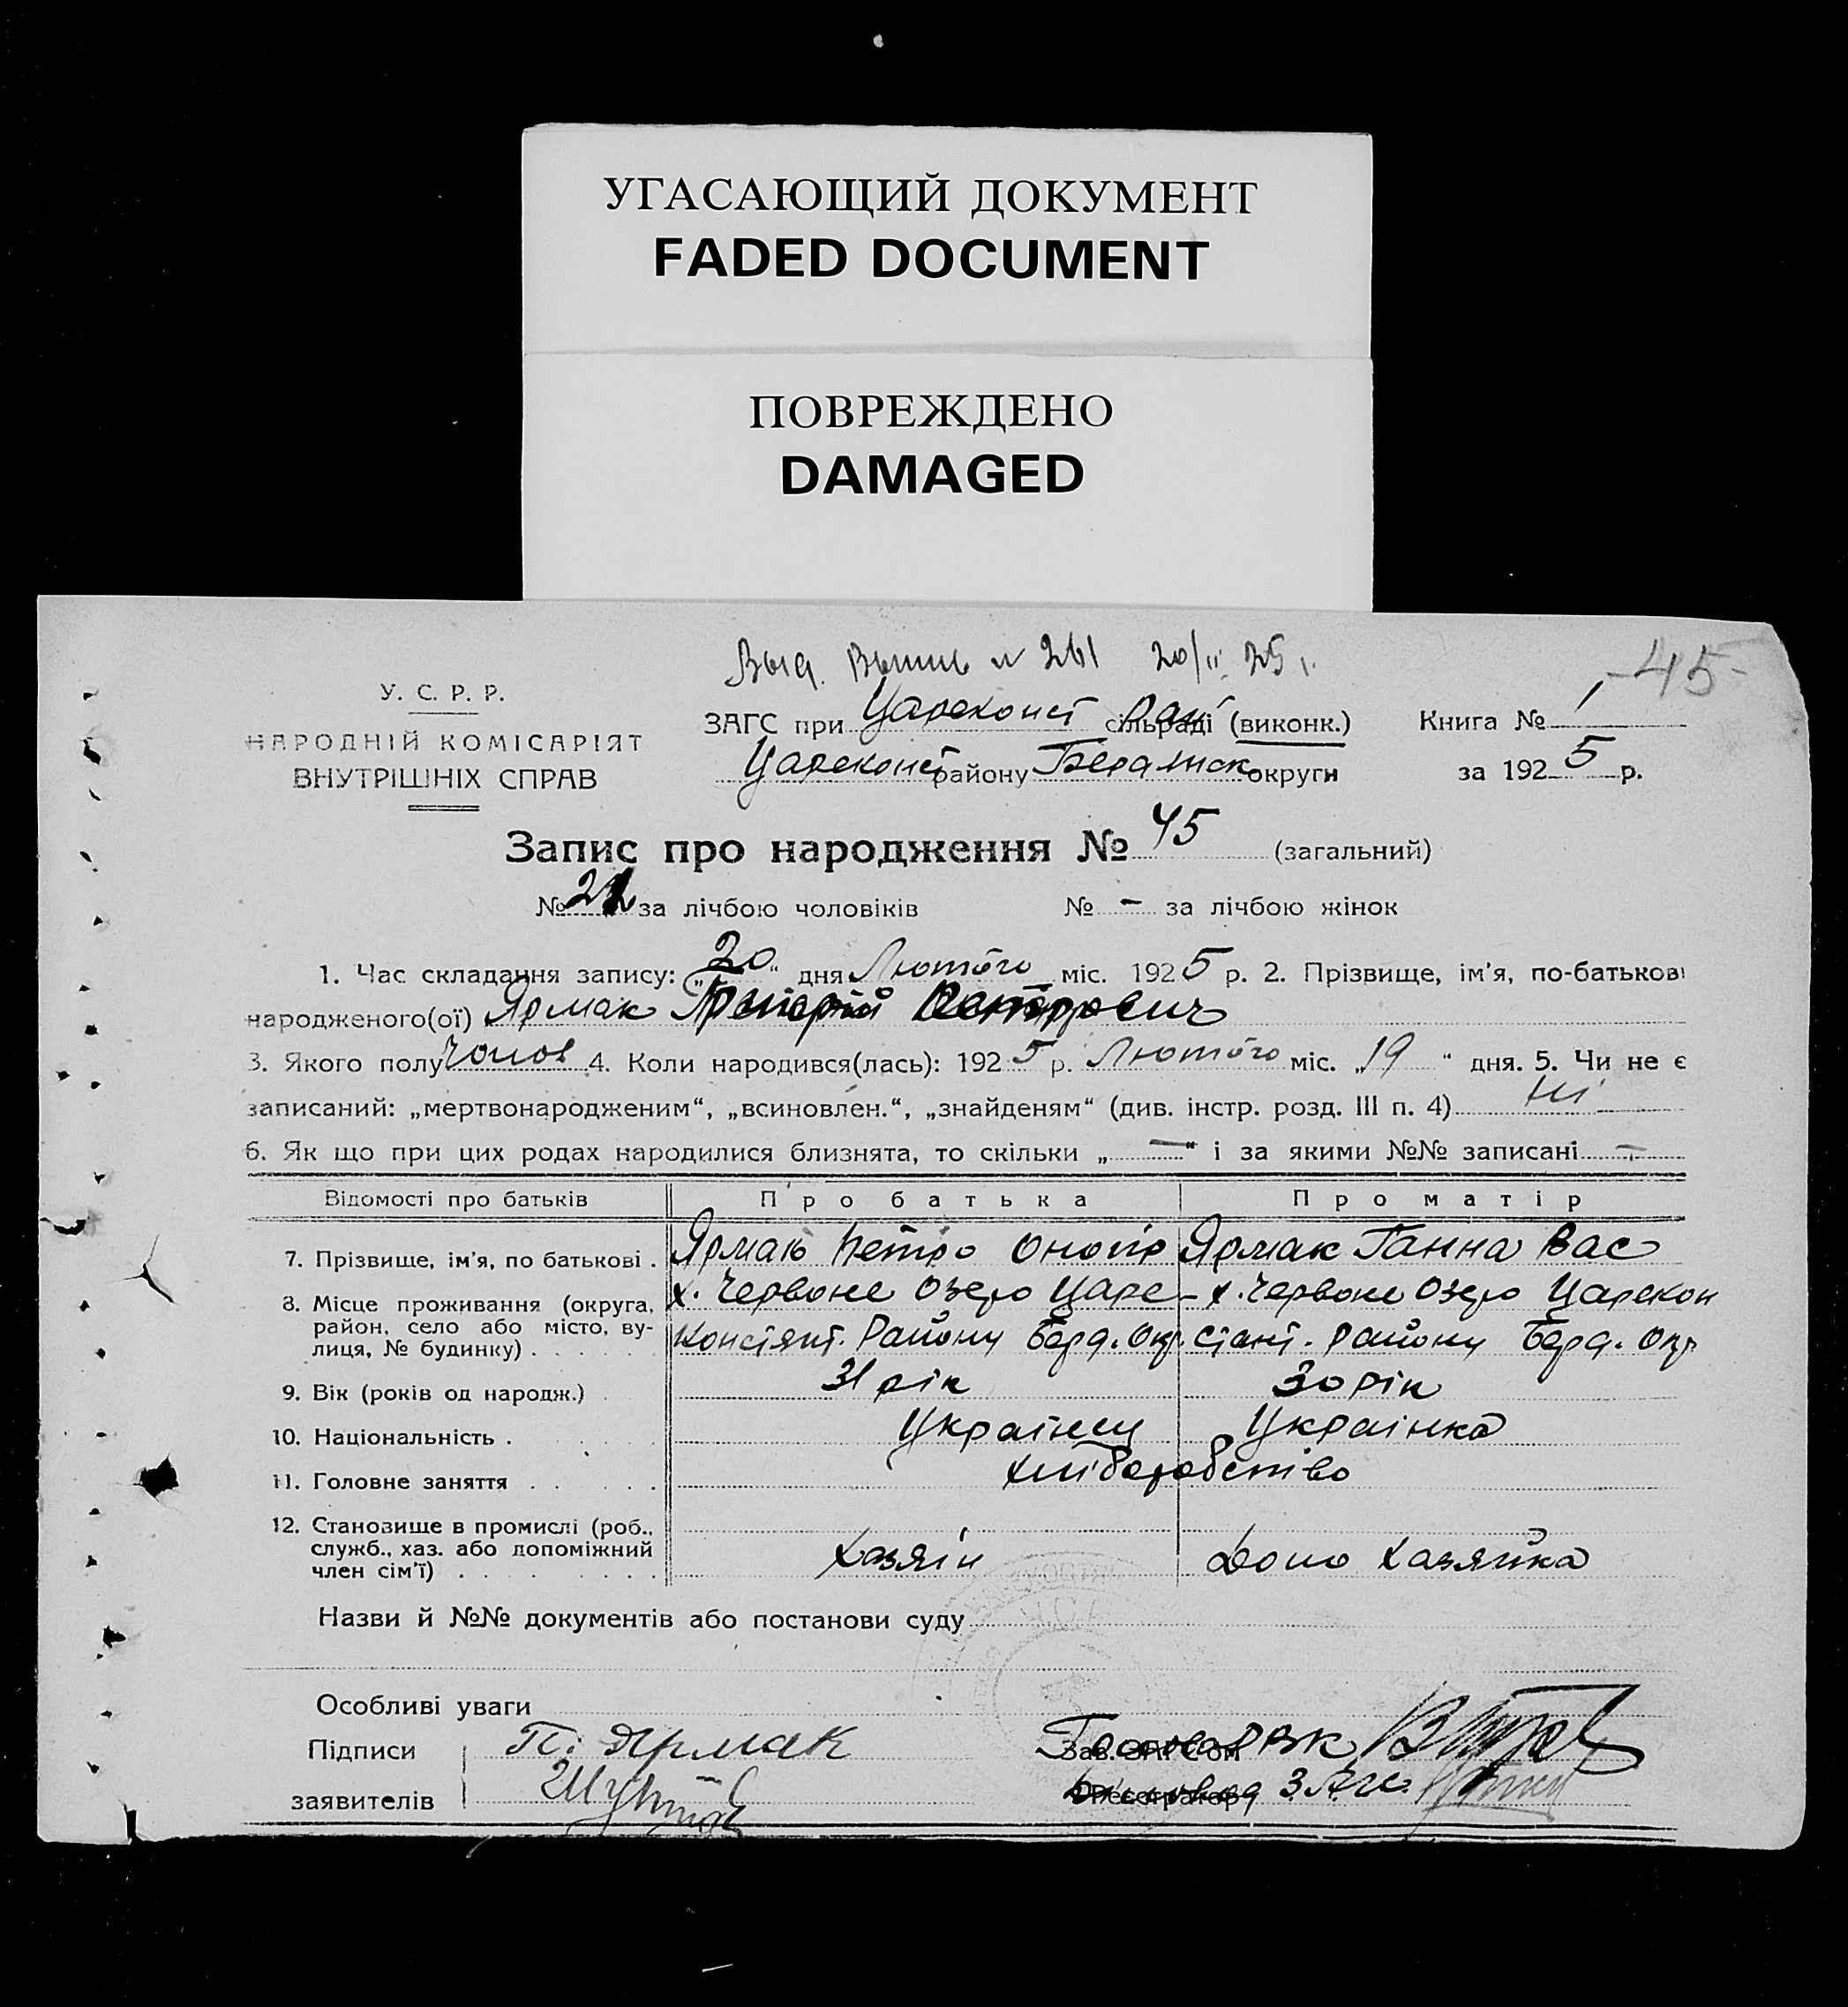 УГАСАЮЩИЙ ДОКУМЕНТ
FADED DOCUMENT
ПОВРЕЖДЕНО
DAMAGED
Выд. Выпись № 261 20/II 25 г.
-45-
У. С. Р. Р.
НАРОДНІЙ КОМІСАРІЯТ
ВНУТРІШНІХ СПРАВ
ЗАГС при Цареконст Рай сільраді (виконк.) Книга № 1
Цареконст району Бердянск округи за 1925 р.
Запис про народження № 45 (загальний)
№ 22 за лічбою чоловіків № - за лічбою жінок
1. Час складання запису: „20" дня Лютого міс. 1925 р. 2. Прізвище, ім'я, по-батькові
народженого(ої) Ярмак Григорій Петрович
3. Якого полу Чолов 4. Коли народився(лась): 1925 р. Лютого міс. „19" дня. 5. Чи не є
записаний: „мертвонародженим", „всиновлен.", „знайденям" (див. інстр. розд. III п. 4) Ні
6. Як що при цих родах народилися близнята, то скільки „—" і за якими №№ записані —
Відомості про батьків Про батька Про матір
7. Прізвище, ім'я, по батькові . Ярмак Петро Онопр Ярмак Ганна Вас
8. Місце проживання (округа, х. Червоне Озеро Царе- х. Червоне Озеро Царекон
район, село або місто, ву- Констянт. Району Берд. Окр. стант. Району Берд. Окр
лиця, № будинку) . . . . . .
9. Вік (років од народж.) . 31 рік 30 рік
10. Національність . Українец Українка
11. Головне заняття . . . . . хліборобство
12. Становище в промислі (роб.,
служб., хаз. або допоміжний Хазяін Домо Хазяйка
член сім'ї) . . . . . . .
Назви й №№ документів або постанови суду
Особливі уваги
Підписи П. Ярмак Зав. ЗАГС'ом
заявителів Реєстратор